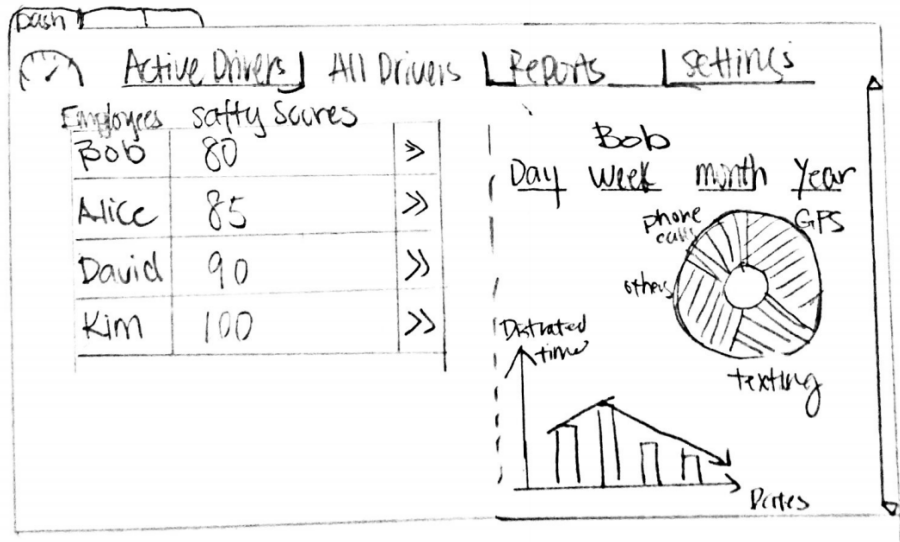 Dash
Active Drivers All Drivers Reports Settings
Employees Safty Scores
Bob 80 >>
Alice 85 >>
David 90 >>
Kim 100 >>
Bob
Day Week month Year
phone
calls
GPS
others
texting
Distrated
time
Dates